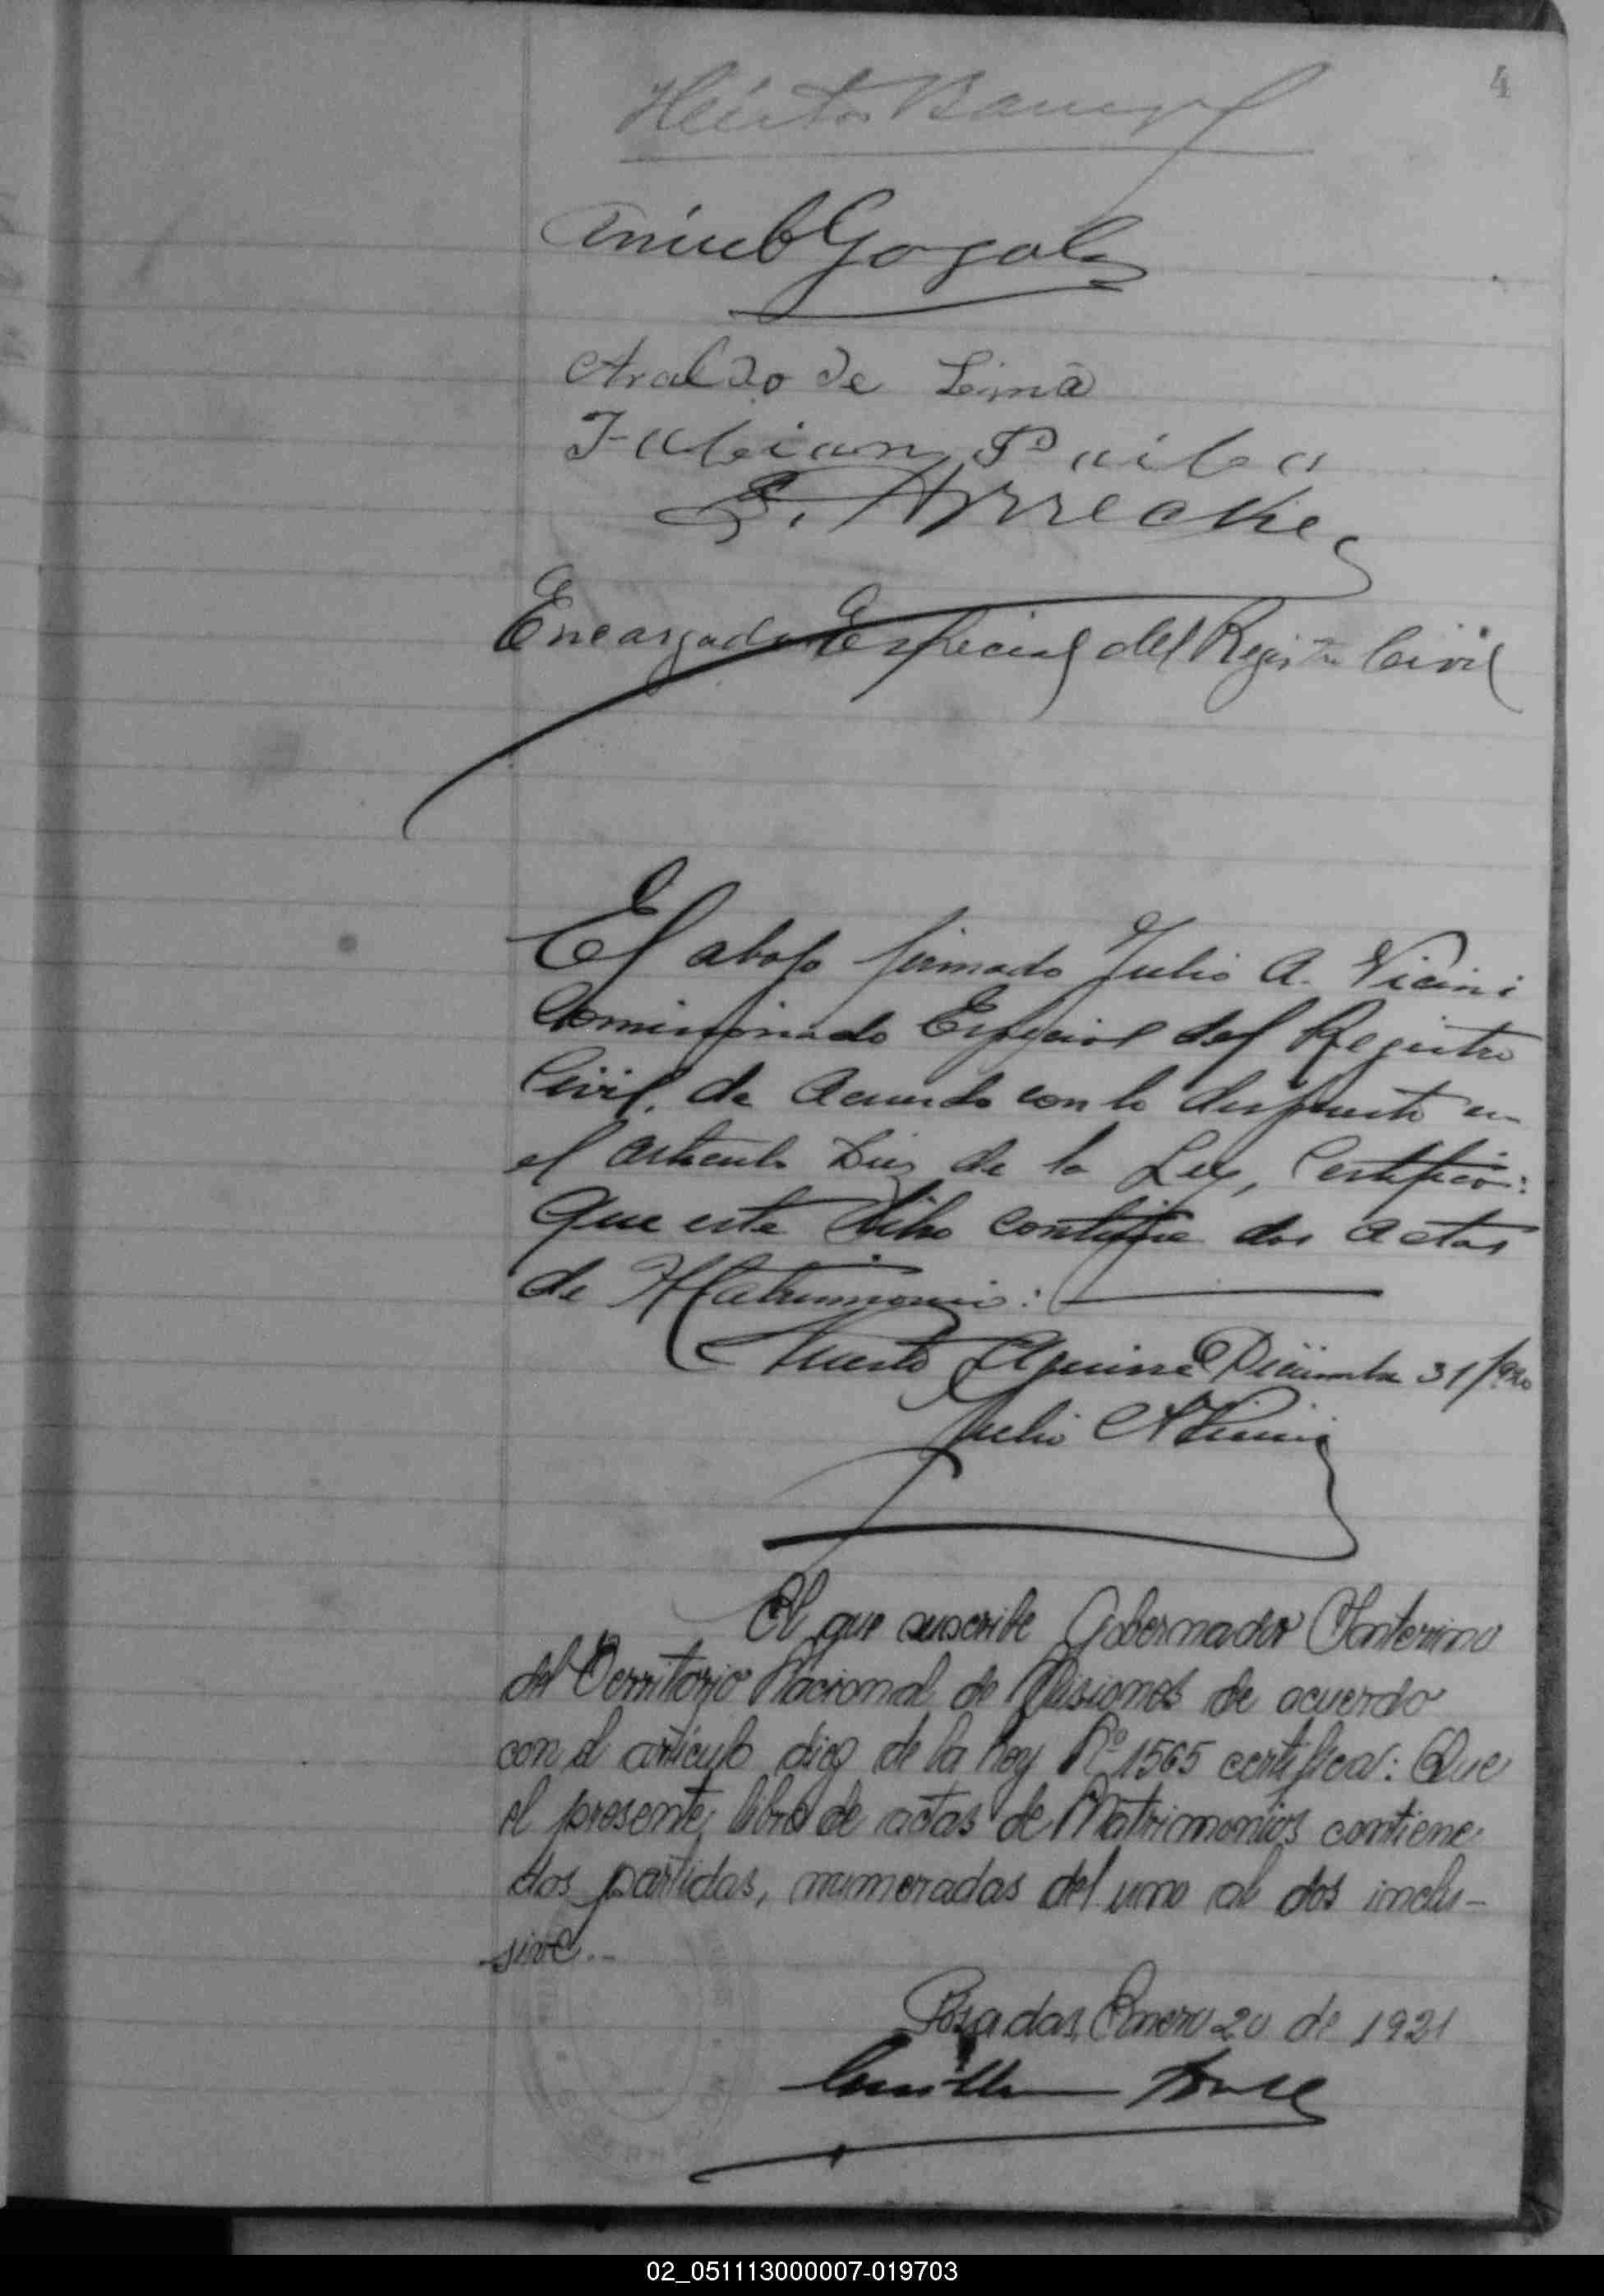 4
Héctor
Gogola
Araldo de Lima
Fabian Paiba
E. Arreche
Encargado Especial del Registro Civil
El abajo firmado Julio A. Vicini
Comisionado Especial del Registro
Civil, de acuerdo con lo dispuesto en
el articulo Diez de la Ley, Certifico:
Que este libro contiene dos actas
de Matrimonio:
Puerto Aguirre Diciembre 31/920
Julio A Vicini
El que suscribe Gobernador Interino
del Territorio Nacional de Misiones de acuerdo
con el artículo diez de la Ley Nº 1565 certifica: Que
el presente libro de actas de Matrimonios contiene
dos partidas, numeradas del uno al dos inclu-
sive.-
Posadas, Enero 20 de 1921
02_051113000007-019703